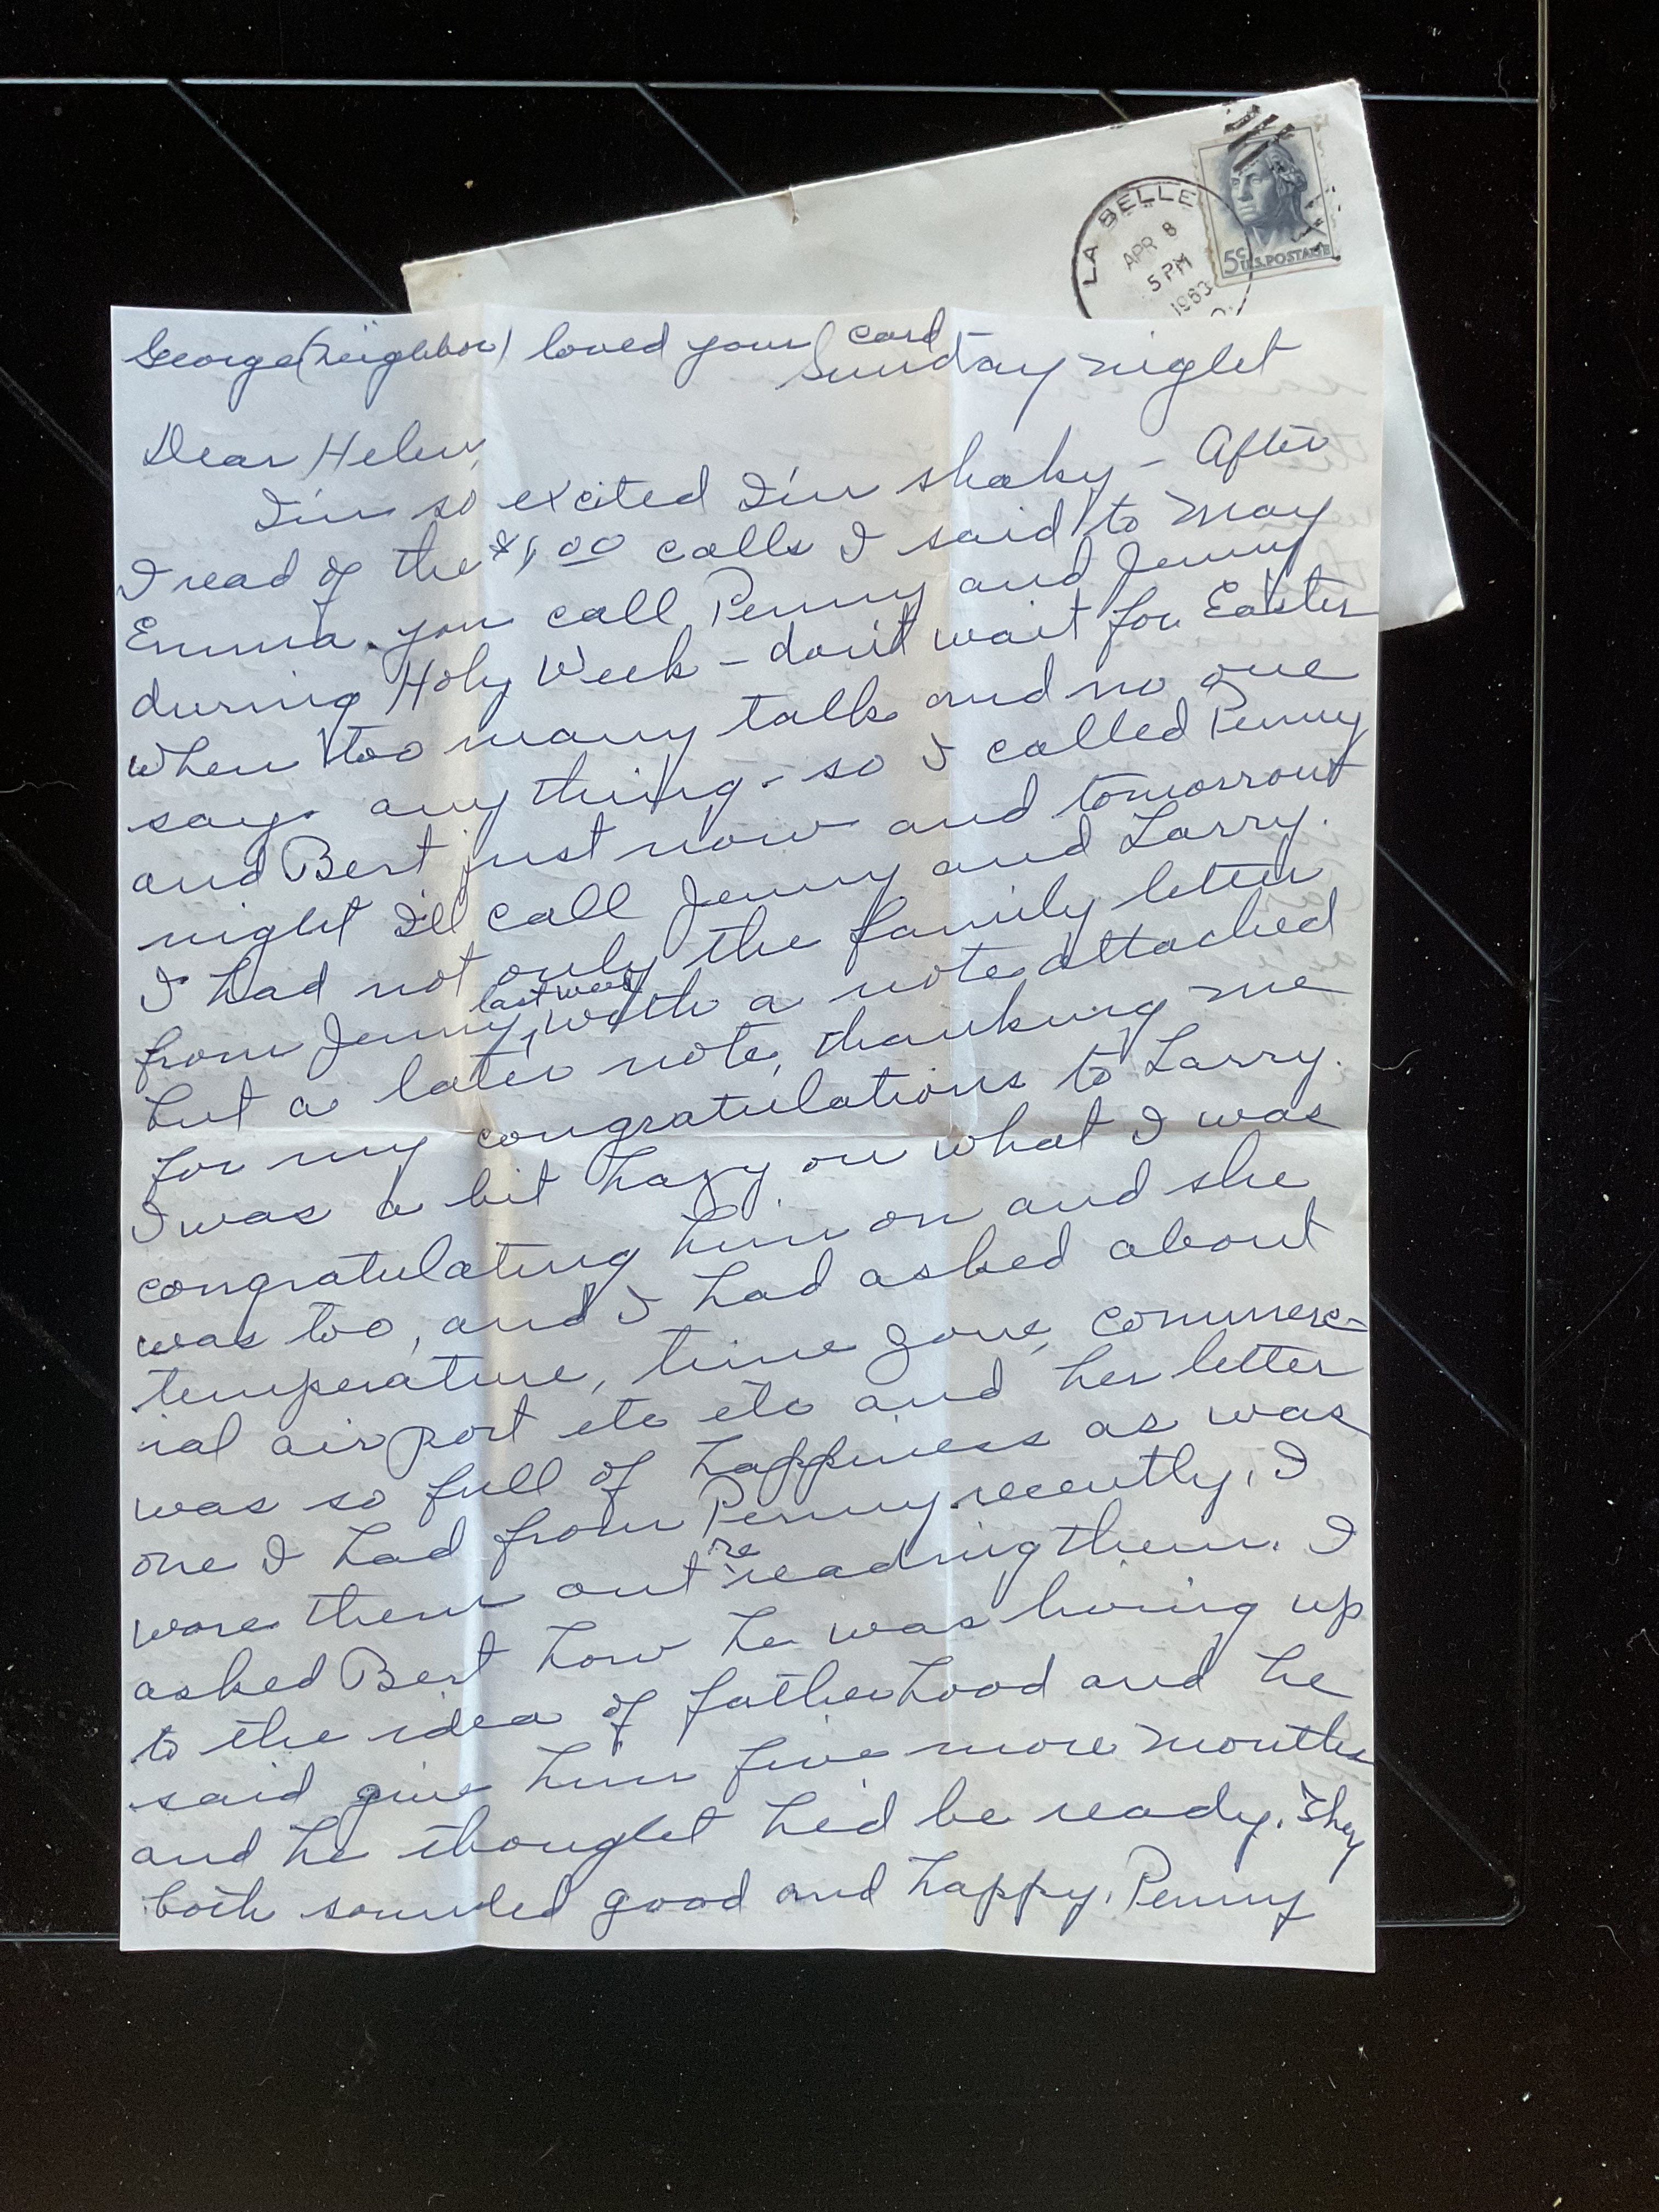 LA BELLE
APR 8
5 PM
1963
O.
5¢ U.S. POSTAGE
George (neighbor) loved your card
Sunday night
Dear Helen,
I'm so excited I'm shaky - After
I read of the $1.00 calls I said to May
Emma. you call Penny and Jenny
during Holy Week - don't wait for Easter
when too many talk and no one
says anything - so I called Penny
and Bert just now and tomorrow
night I'll call Jenny and Larry.
I had not only the family letter
from Jenny, last week with a note attached
but a later note, thanking me
for my congratulations to Larry.
I was a bit hazy on what I was
congratulating him on and she
was too, and I had asked about
temperature, time zone, commerc-
ial airport etc etc and her letter
was so full of happiness as was
one I had from Penny recently. I
wore them out re reading them. I
asked Bert how he was living up
to the idea of fatherhood and he
said give him five more months
and he thought he'd be ready. They
both sounded good and happy. Penny